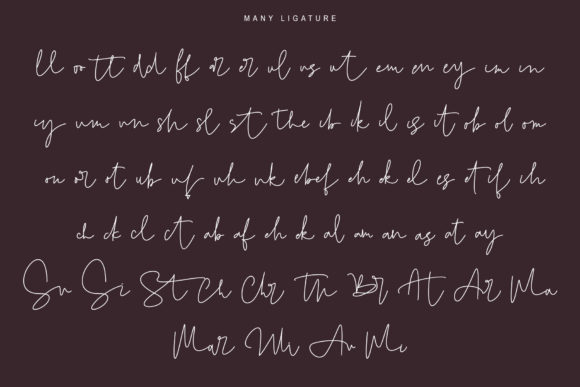 MANY LIGATURE
ll oo tt dd ff ar er ul us ut em en ey im in
iy um un sh sl st the ib ik il is it ob ol om
on or ot ub uf uh uk eb ef eh ek el es et if ih
ch ck cl ct ab af eh ak al am an as at ay
Su Si St Ch Chr Th Br At Ar Ma
Mar Mi Au Mi